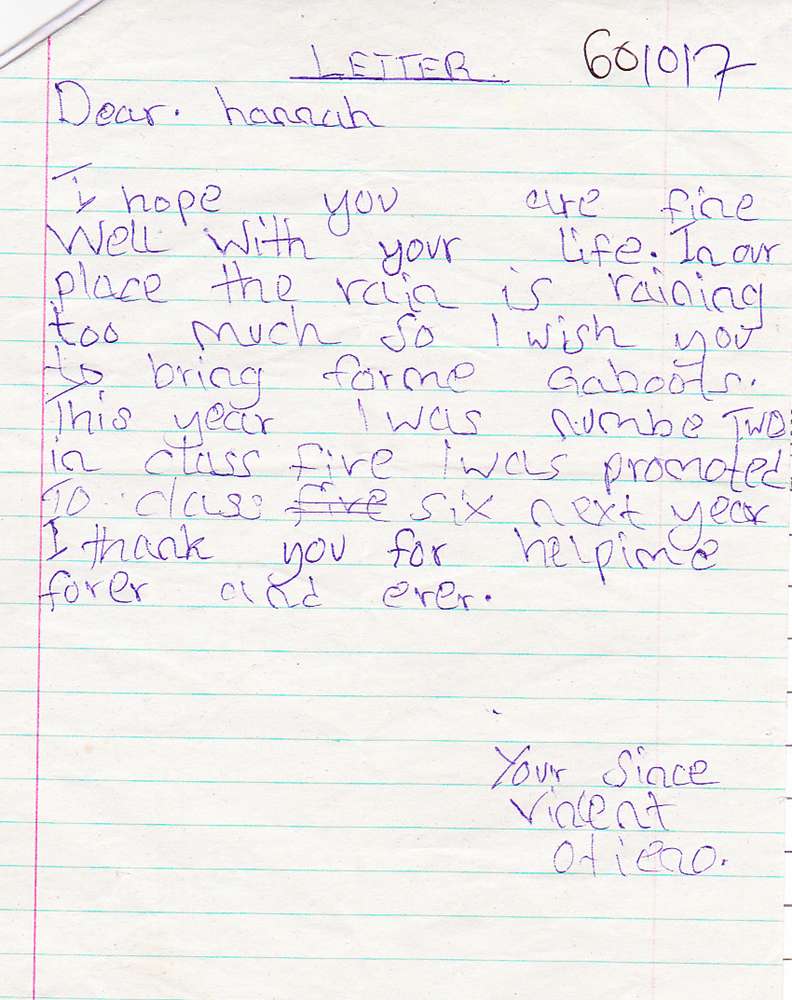 LETTER
601017
Dear. hannah
I hope you are fine
Well With your life. In our
place the rain is raining
too much So I wish you
to bring forme Gaboots.
This year I was numbe TWO
in class five I was promoted
To class five six next year
I thank you for helpime
forer and erer.
Your Since
Vincent
Otieno.